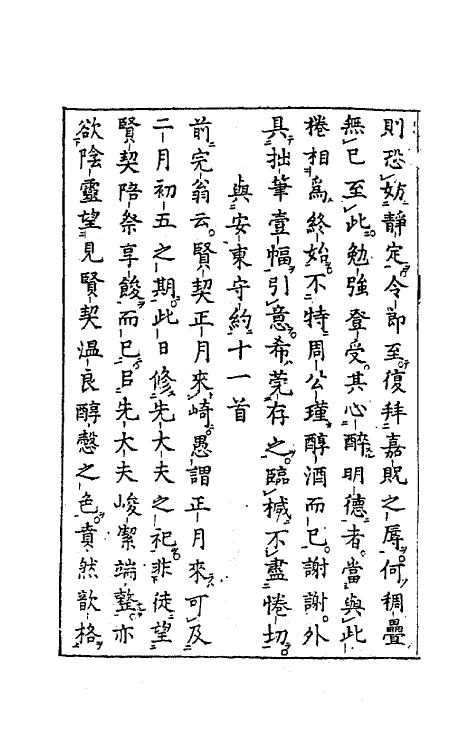 則恐妨靜定今即至復拜嘉貺之辱何稠疊
無已至此勉強登受其心醉明德者當與此
棬相爲終始不特周公瑾醇酒而已謝謝外
具拙筆壹幅引意希莞存之臨椷不盡惓切
與安東守約十一首
前完翁云賢契正月來崎愚謂正月來可及
二月初五之期此日修先大夫之祀非徒望
賢契陪祭享餕而已㠯先大夫峻潔端整亦
欲陰靈望見賢契溫良醇慤之色賁然歆格